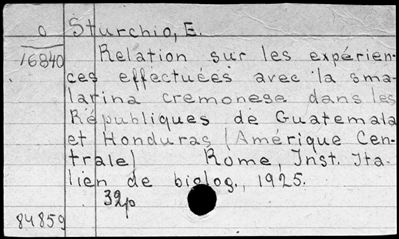 O Sturchio, E.
16840 Relation sur les expérien-
ces effectuées avec "la sma-
larina cremonese dans les
Républiques de Guatemala
et Honduras (Amérique Cen-
trale) Rome, Inst. Ita-
lien de biolog., 1925.
32p
84859